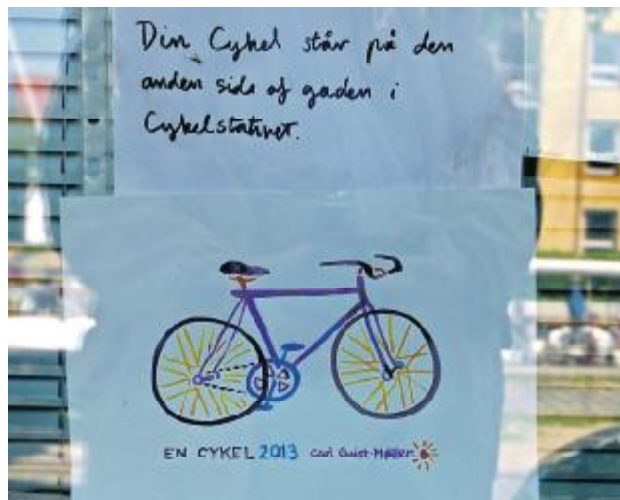 Din Cykel står på den
anden side af gaden i
Cykelstativet.
EN CYKEL 2013 Carl Quist-Møller